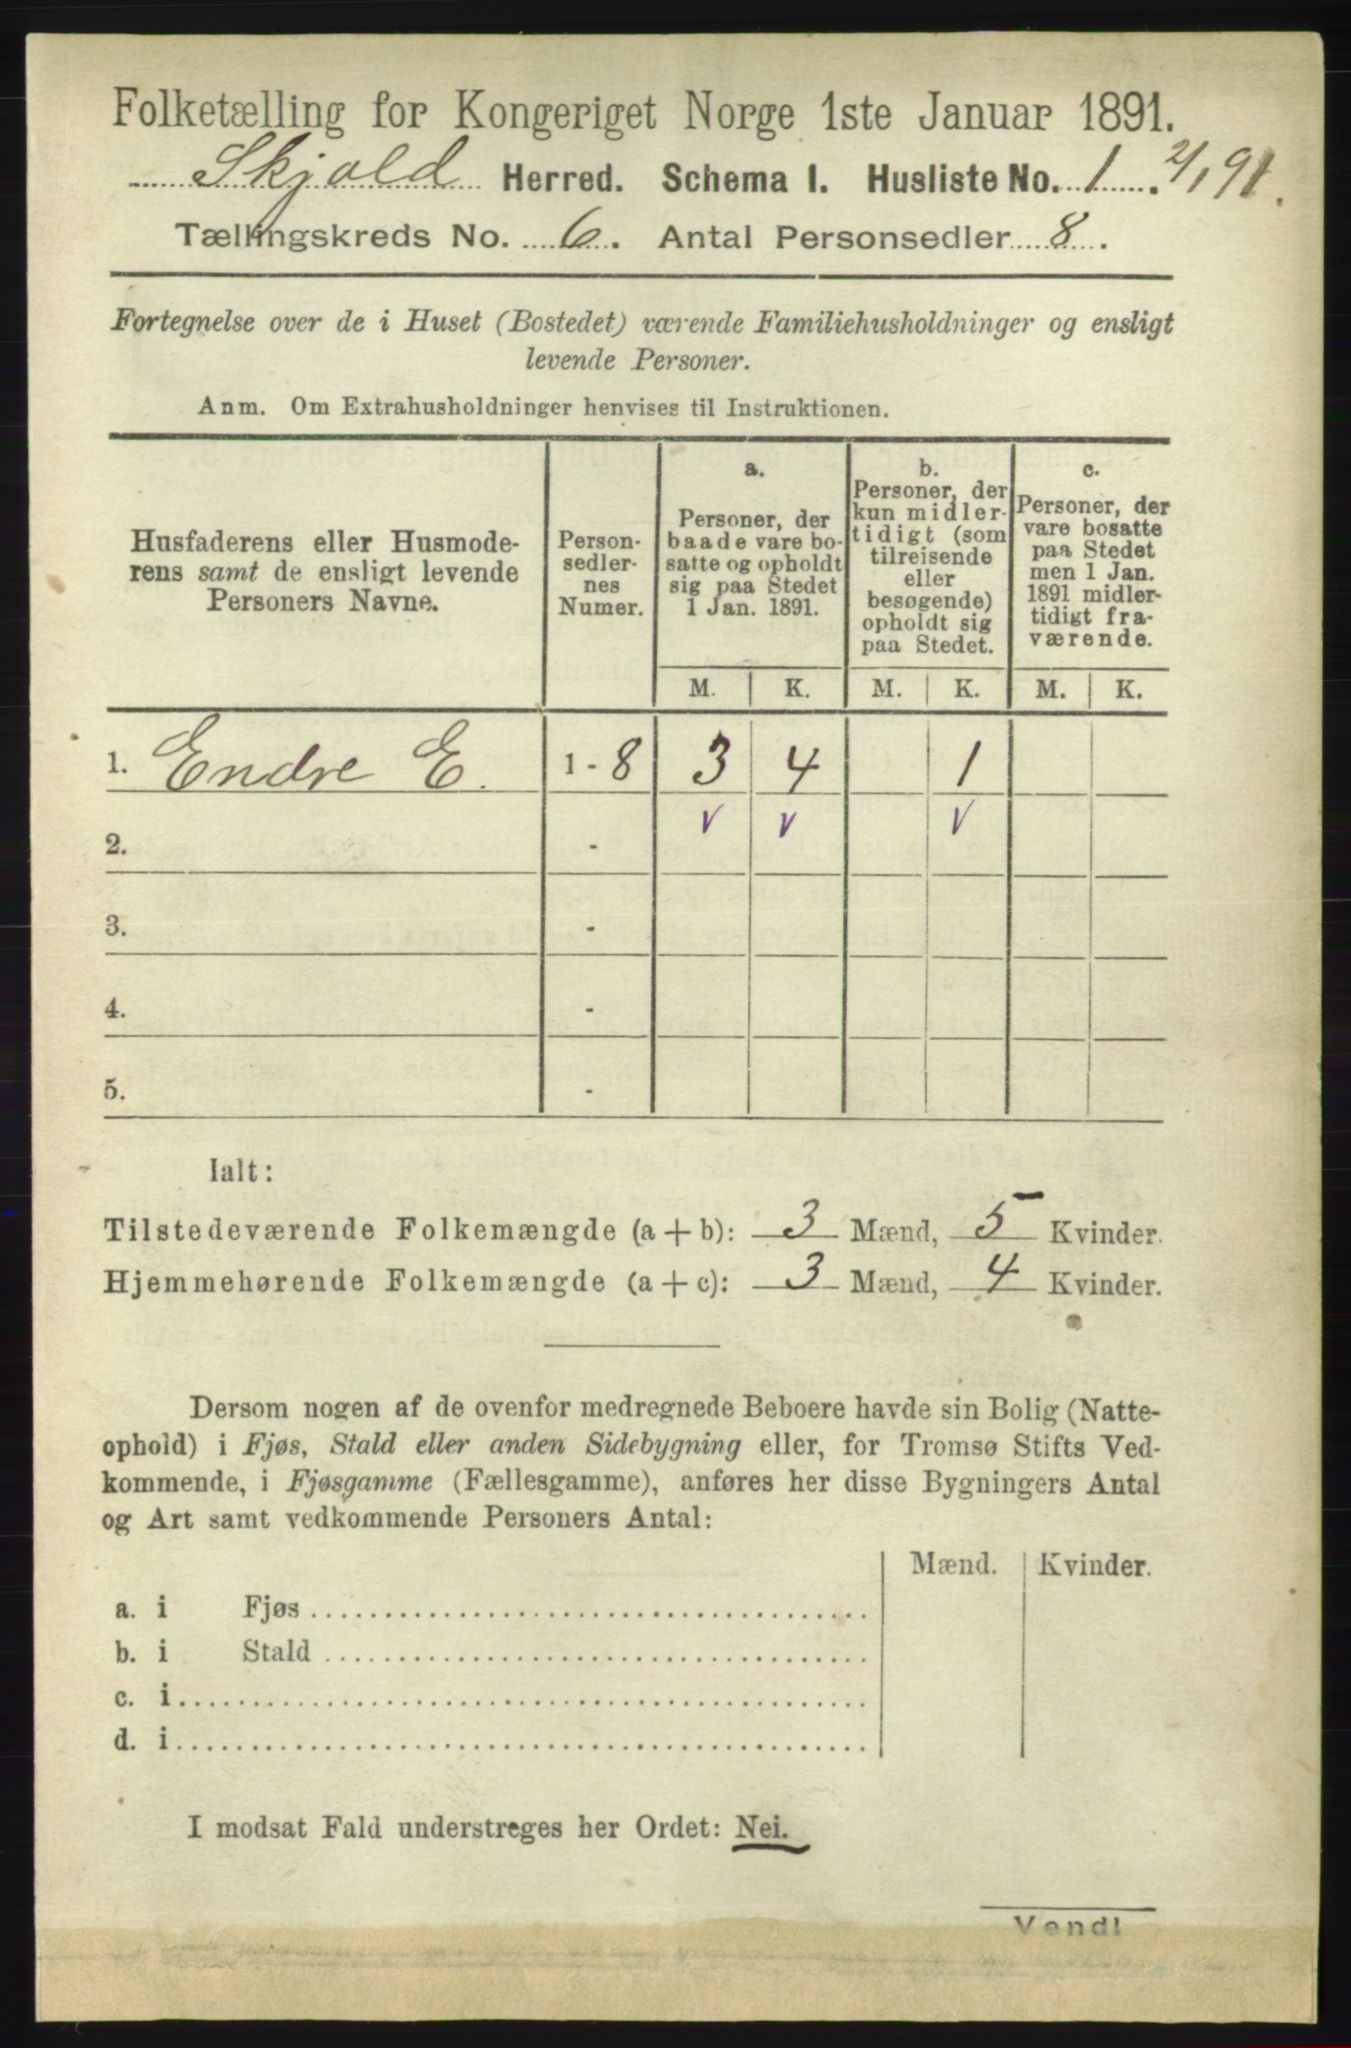 Folketælling for Kongeriget Norge 1ste Januar 1891.
Skjold Herred. Schema I. Husliste No. 1. 2/1 91.
Tællingskreds No. 6. Antal Personsedler 8.
Fortegnelse over de i Huset (Bostedet) værende Familiehusholdninger og ensligt
levende Personer.
Anm. Om Extrahusholdninger henvises til Instruktionen.
Husfaderens eller Husmode-
rens samt de ensligt levende
Personers Navne.
Person-
sedler-
nes
Numer.
a.
Personer, der
baade vare bo-
satte og opholdt
sig paa Stedet
1 Jan. 1891.
b.
Personer, der
kun midler-
tidigt (som
tilreisende
eller
besøgende)
opholdt sig
paa Stedet.
c.
Personer, der
vare bosatte
paa Stedet
men 1 Jan.
1891 midler-
tidigt fra-
værende.
M. K. M. K. M. K.
1. Endre E. 1 - 8 3 4 1
v v v
2. -
3. -
4. -
5. -
Ialt:
Tilstedeværende Folkemængde (a + b): 3 Mænd, 5 Kvinder.
Hjemmehørende Folkemængde (a + c): 3 Mænd, 4 Kvinder.
Dersom nogen af de ovenfor medregnede Beboere havde sin Bolig (Natte-
ophold) i Fjøs, Stald eller anden Sidebygning eller, for Tromsø Stifts Ved-
kommende, i Fjøsgamme (Fællesgamme), anføres her disse Bygningers Antal
og Art samt vedkommende Personers Antal:
Mænd. Kvinder.
a. i Fjøs
b. i Stald
c. i
d. i
I modsat Fald understreges her Ordet: Nei.
Vend!